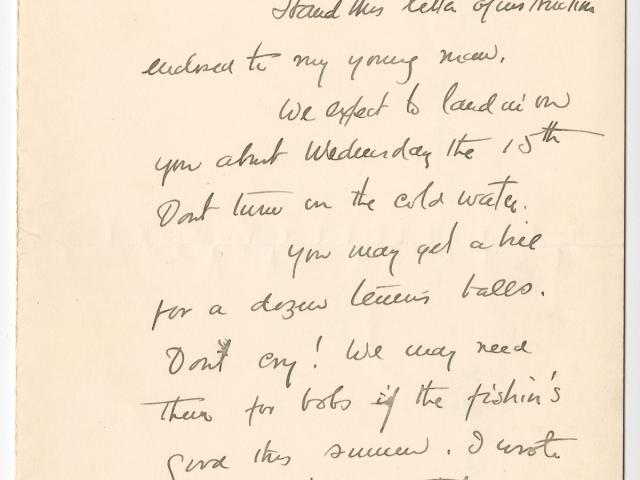 Hand this letter of instruction
enclosed to my young man.
We expect to land in on
you about Wednesday the 15th
Dont turn on the cold water.
You may get a bill
for a dozen tennis balls.
Don't cry! We may need
them for bobs if the fishin's
good this summer. I wrote